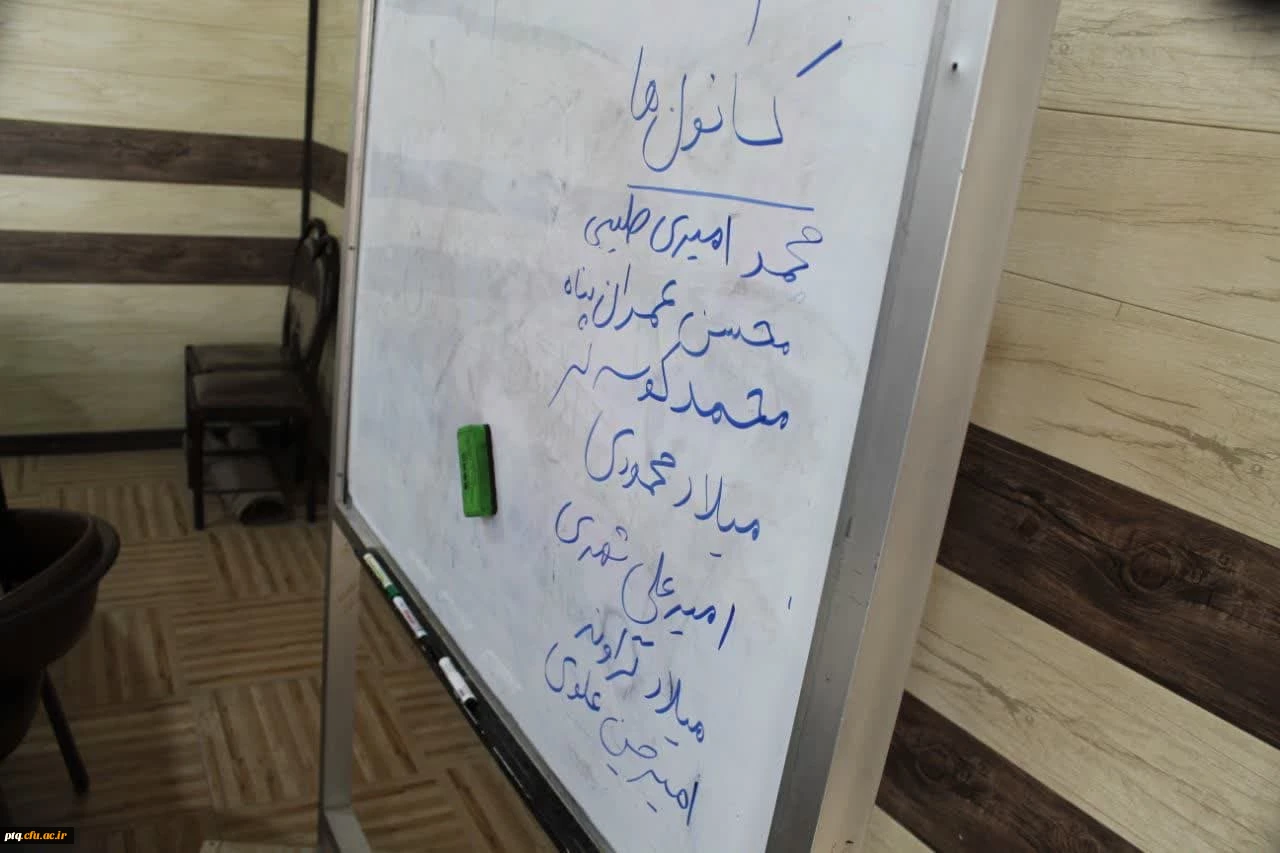 کانون ها
محمد امیری طیبی
محسن عمران پناه
محمد کوسه لر
میلاد محمودی
امیرعلی شهری
میلاد گراونه
امیرحسین علوی
ptq.cfu.ac.ir